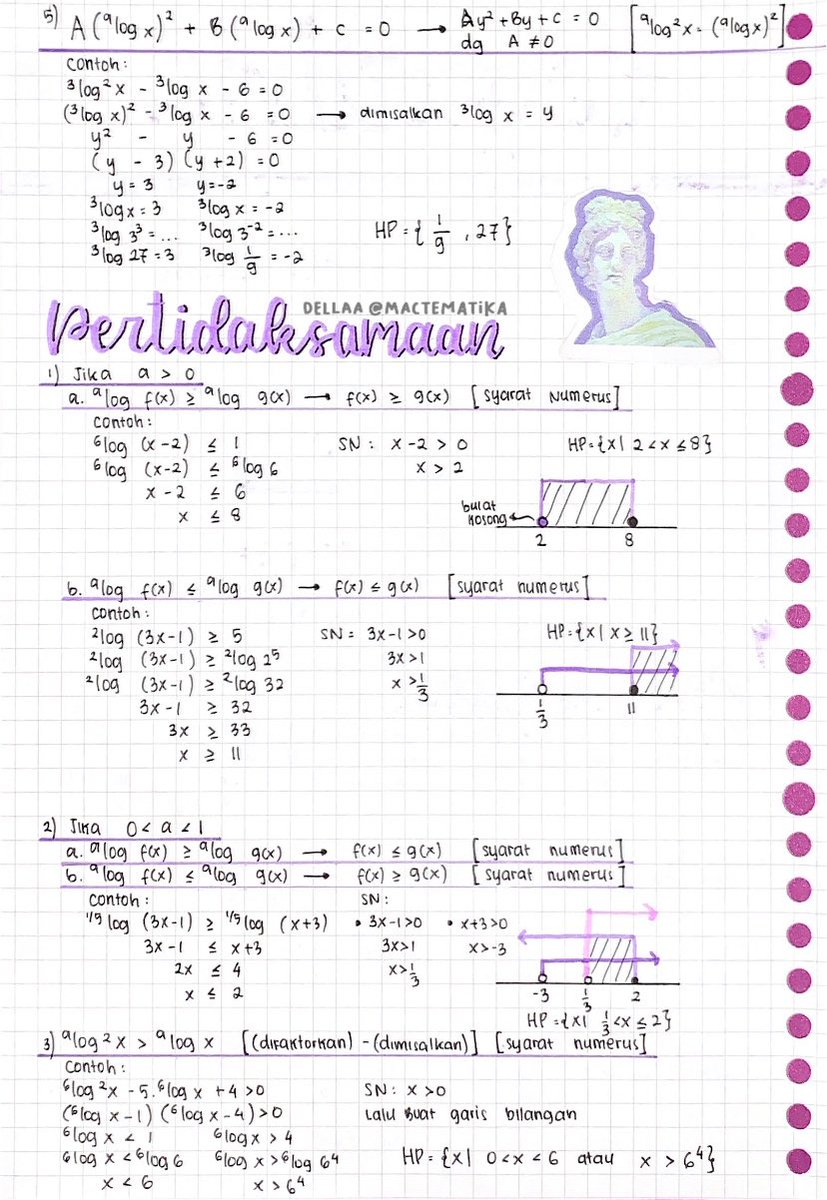 5) A(ᵃlog x)² + B(ᵃlog x) + c = 0 → Ay² + By + c = 0 [ᵃlog²x = (ᵃlog x)²]
dg A ≠ 0
contoh:
³log²x - ³log x - 6 = 0
(³log x)² - ³log x - 6 = 0 → dimisalkan ³log x = y
y² - y - 6 = 0
(y - 3) (y + 2) = 0
y = 3 y = -2
³log x = 3 ³log x = -2
³log 3³ = ... ³log 3⁻² = ...
³log 27 = 3 ³log 1/9 = -2
HP = { 1/9 , 27}
DELLAA @MACTEMATiKA
pertidaksamaan
1) Jika a > 0
a. ᵃlog f(x) ≥ ᵃlog g(x) → f(x) ≥ g(x) [syarat Numerus]
contoh:
⁶log (x-2) ≤ 1 SN: x - 2 > 0 HP = {x| 2 < x ≤ 8}
⁶log (x-2) ≤ ⁶log 6 x > 2
x - 2 ≤ 6
x ≤ 8
bulat kosong
2 8
b. ᵃlog f(x) ≤ ᵃlog g(x) → f(x) ≤ g(x) [syarat numerus]
contoh:
²log (3x-1) ≥ 5 SN = 3x-1 > 0 HP = {x| x ≥ 11}
²log (3x-1) ≥ ²log 2⁵ 3x > 1
²log (3x-1) ≥ ²log 32 x > 1/3
3x-1 ≥ 32
3x ≥ 33
x ≥ 11
1/3 11
2) Jika 0 < a < 1
a. ᵃlog f(x) ≥ ᵃlog g(x) → f(x) ≤ g(x) [syarat numerus]
b. ᵃlog f(x) ≤ ᵃlog g(x) → f(x) ≥ g(x) [syarat numerus]
contoh: SN:
¹/⁵log (3x-1) ≥ ¹/⁵log (x+3) • 3x-1>0 • x+3>0
3x-1 ≤ x+3 3x>1 x>-3
2x ≤ 4 x>1/3
x ≤ 2
-3 1/3 2
HP = {x| 1/3 < x ≤ 2}
3) ᵃlog²x > ᵃlog x [(difaktorkan) - (dimisalkan)] [syarat numerus]
contoh:
⁶log²x - 5.⁶log x + 4 > 0 SN: x > 0
(⁶log x - 1) (⁶log x - 4) > 0 Lalu buat garis bilangan
⁶log x < 1 ⁶log x > 4
⁶log x < ⁶log 6 ⁶log x > ⁶log 6⁴ HP = {x| 0 < x < 6 atau x > 6⁴}
x < 6 x > 6⁴